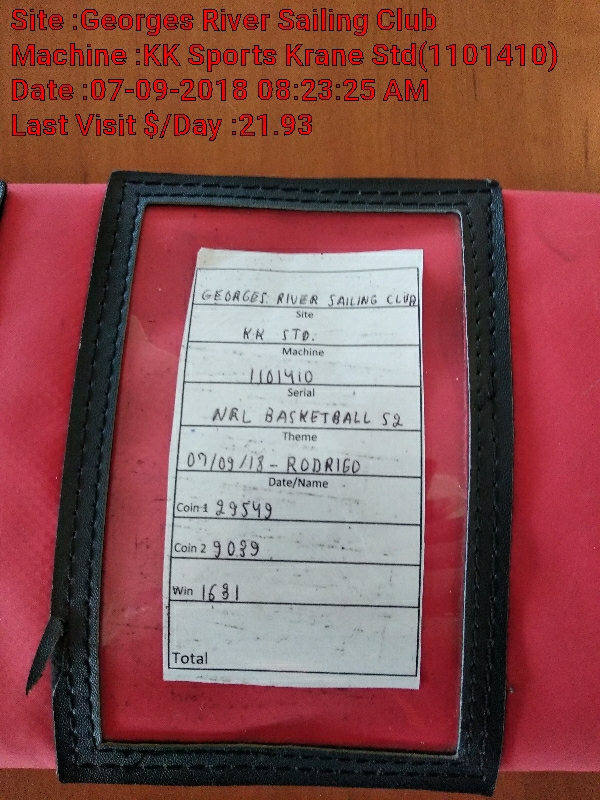 Site :Georges River Sailing Club
Machine :KK Sports Krane Std(1101410)
Date :07-09-2018 08:23:25 AM
Last Visit $/Day :21.93
GEORGES RIVER SAILING CLUB
Site
KK STD.
Machine
1101410
Serial
NRL BASKETBALL S2
Theme
07/09/18 - RODRIGO
Date/Name
Coin 1 29549
Coin 2 9039
Win 1631
Total